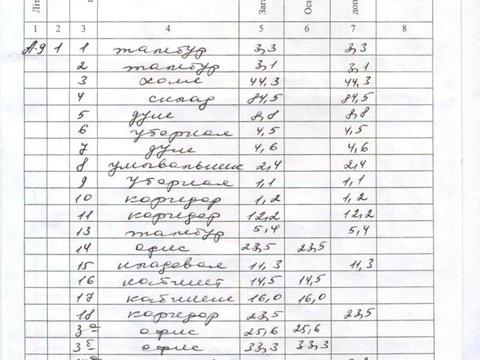 Літ
Заг
Осн
доп
1 2 3 4 5 6 7 8
А-9 1 1 тамбур 3,3 3,3
2 тамбур 3,1 3,1
3 холл 44,3 44,3
4 склад 84,5 84,5
5 душ 8,8 8,8
6 уборная 4,5 4,5
7 душ 4,6 4,6
8 умывальник 2,4 2,4
9 уборная 1,1 1,1
10 коридор 1,2 1,2
11 коридор 12,2 12,2
13 тамбур 5,4 5,4
14 офис 23,5 23,5
15 кладовая 11,3 11,3
16 кабинет 14,5 14,5
17 кабинет 16,0 16,0
18 коридор 23,5 23,5
3а офис 25,6 25,6
3б офис 33,3 33,3